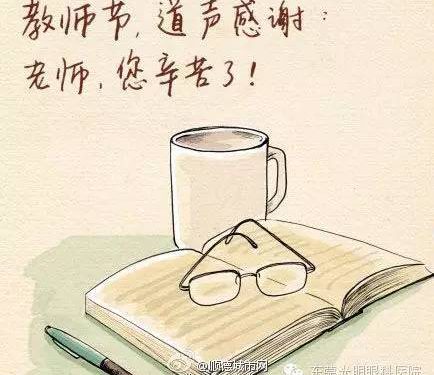 教师节,道声感谢:
老师,您辛苦了!
@顺德城市网
东莞光明眼科医院